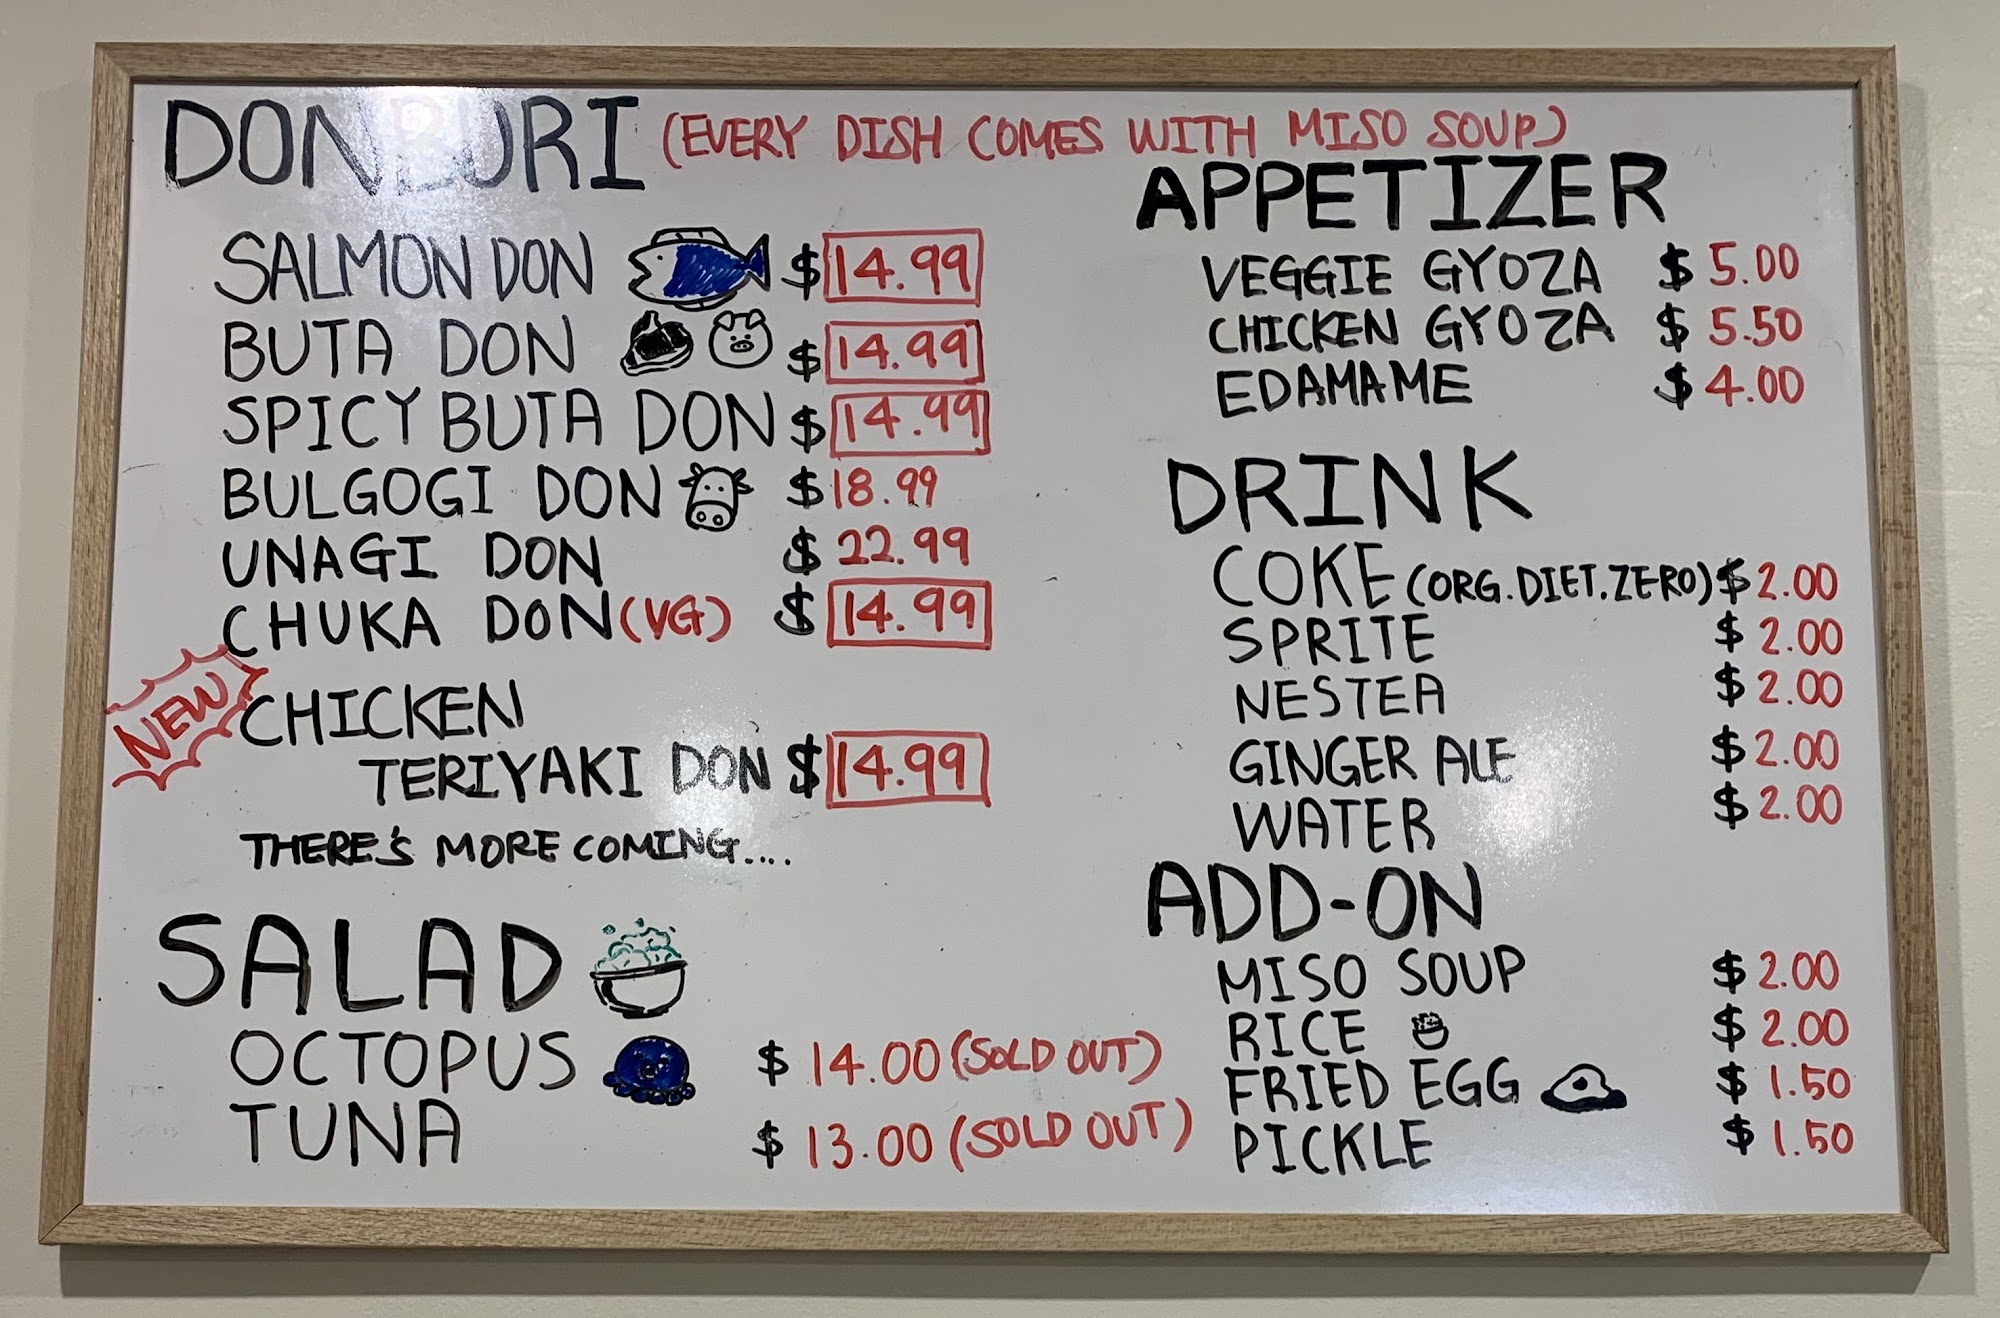 DONBURI (EVERY DISH COMES WITH MISO SOUP)
SALMON DON $ 14.99
BUTA DON $ 14.99
SPICY BUTA DON $ 14.99
BULGOGI DON $ 18.99
UNAGI DON $ 22.99
CHUKA DON (VG) $ 14.99
NEW
CHICKEN
TERIYAKI DON $ 14.99
THERE'S MORE COMING....
SALAD
OCTOPUS $ 14.00 (SOLD OUT)
TUNA $ 13.00 (SOLD OUT)
APPETIZER
VEGGIE GYOZA $ 5.00
CHICKEN GYOZA $ 5.50
EDAMAME $ 4.00
DRINK
COKE (ORG.DIET.ZERO) $ 2.00
SPRITE $ 2.00
NESTEA $ 2.00
GINGER ALE $ 2.00
WATER $ 2.00
ADD-ON
MISO SOUP $ 2.00
RICE $ 2.00
FRIED EGG $ 1.50
PICKLE $ 1.50